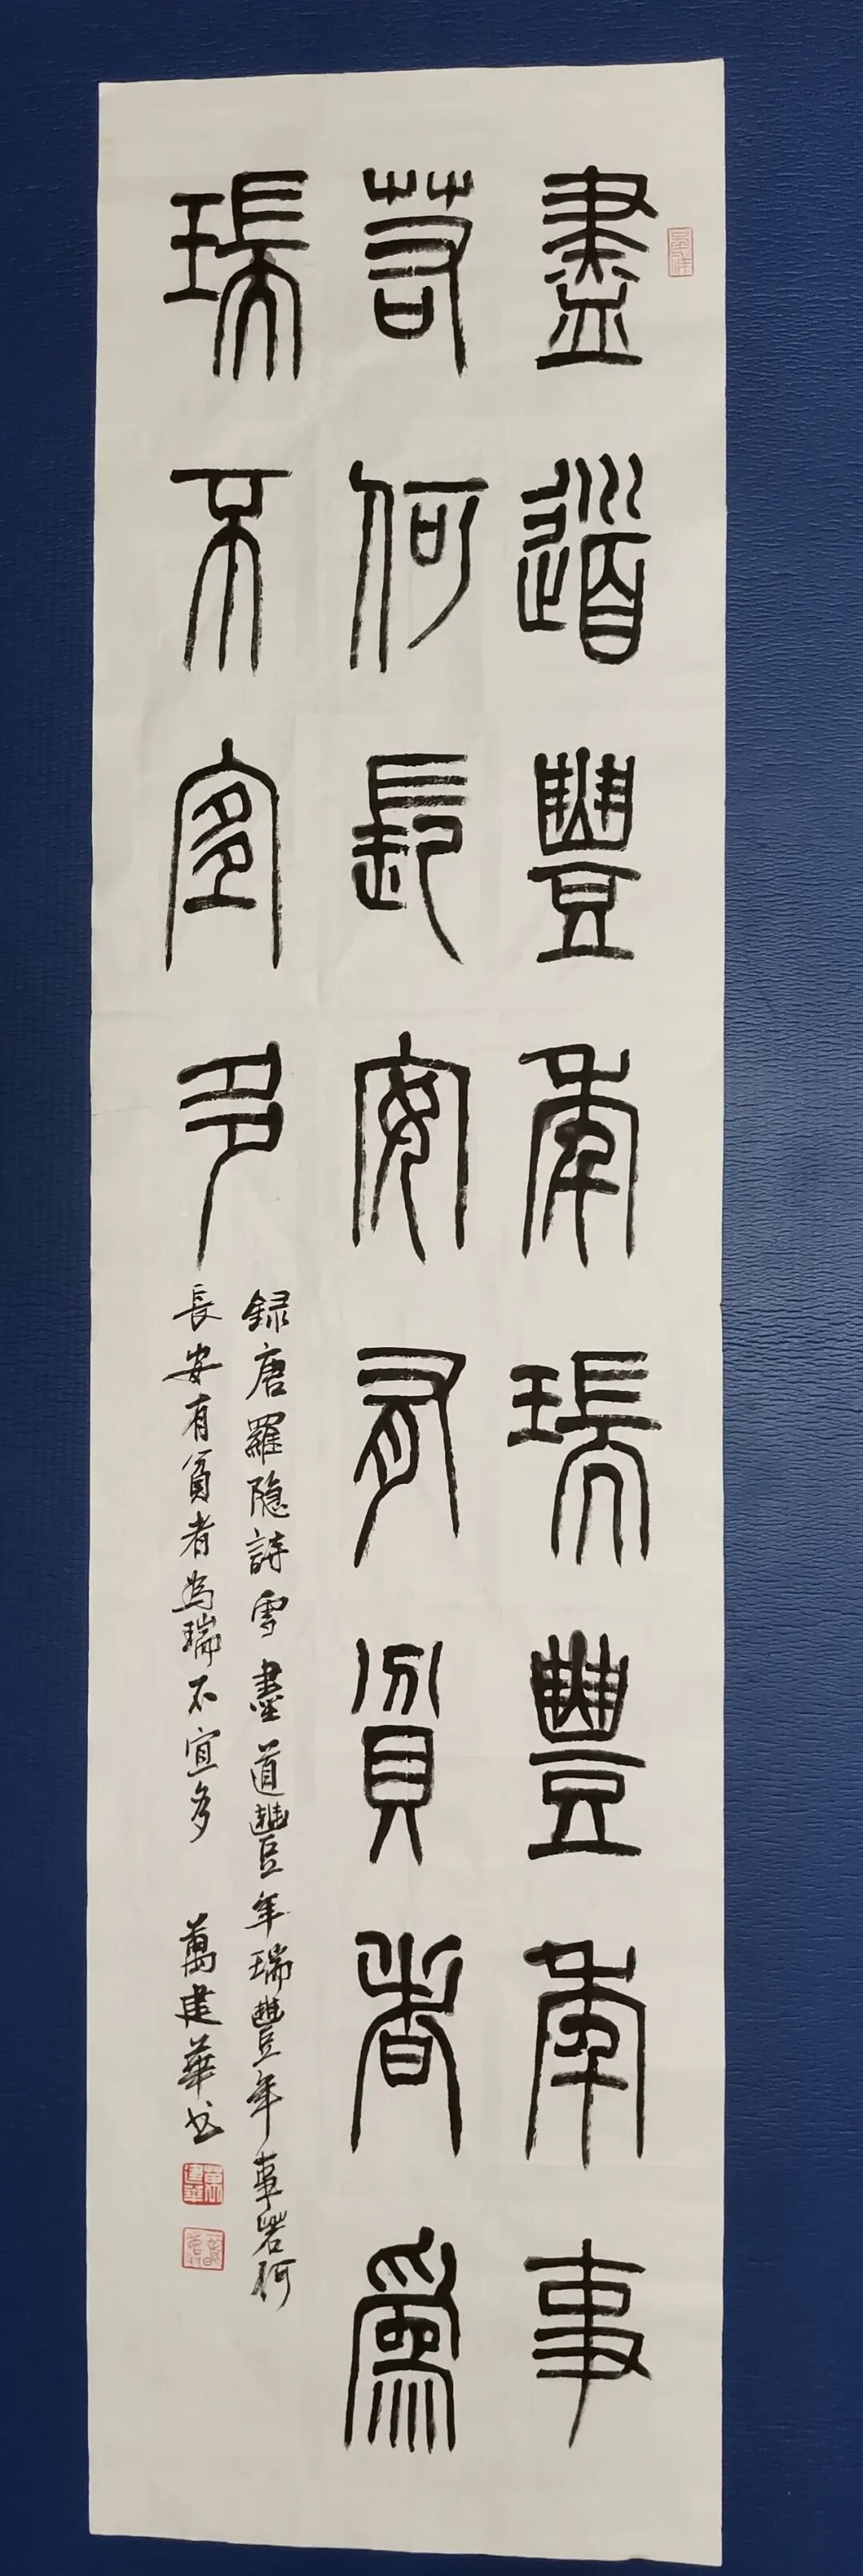 盡道豐年瑞豐年事
若何長安有貧者爲
瑞不宜多
録唐羅隐詩雪盡道豐年瑞豐年事若何
長安有貧者為瑞不宜多 萬建華书
萬建華